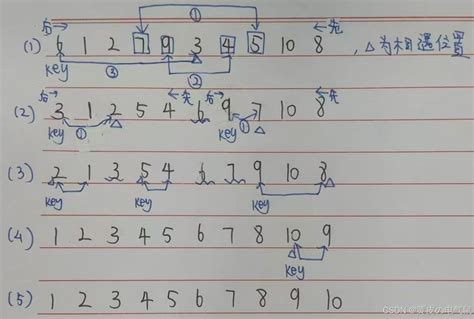 后→ ① ←先
(1) 6 1 2 7 9 3 4 5 10 8 , △为相遇位置
key ③ ②
(2) 后→ 3 1 2 5 4 ←先 6 后→ 9 7 10 8 ←先
key ① △ key ① △
(3) 2 1 3 5 4 6 7 9 10 8 △
key key key
(4) 1 2 3 4 5 6 7 8 10 9
△
key
(5) 1 2 3 4 5 6 7 8 9 10
CSDN